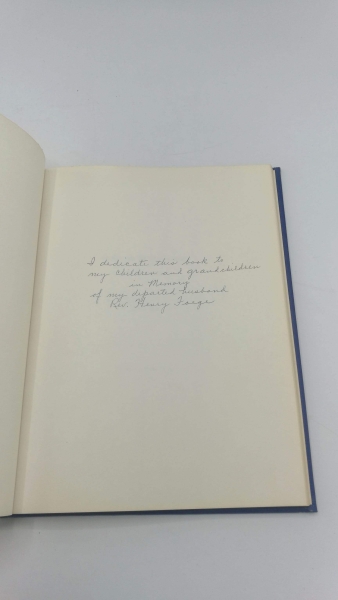 I dedicate this book to
my children and grandchildren
in Memory
of my departed husband
Rev. Henry